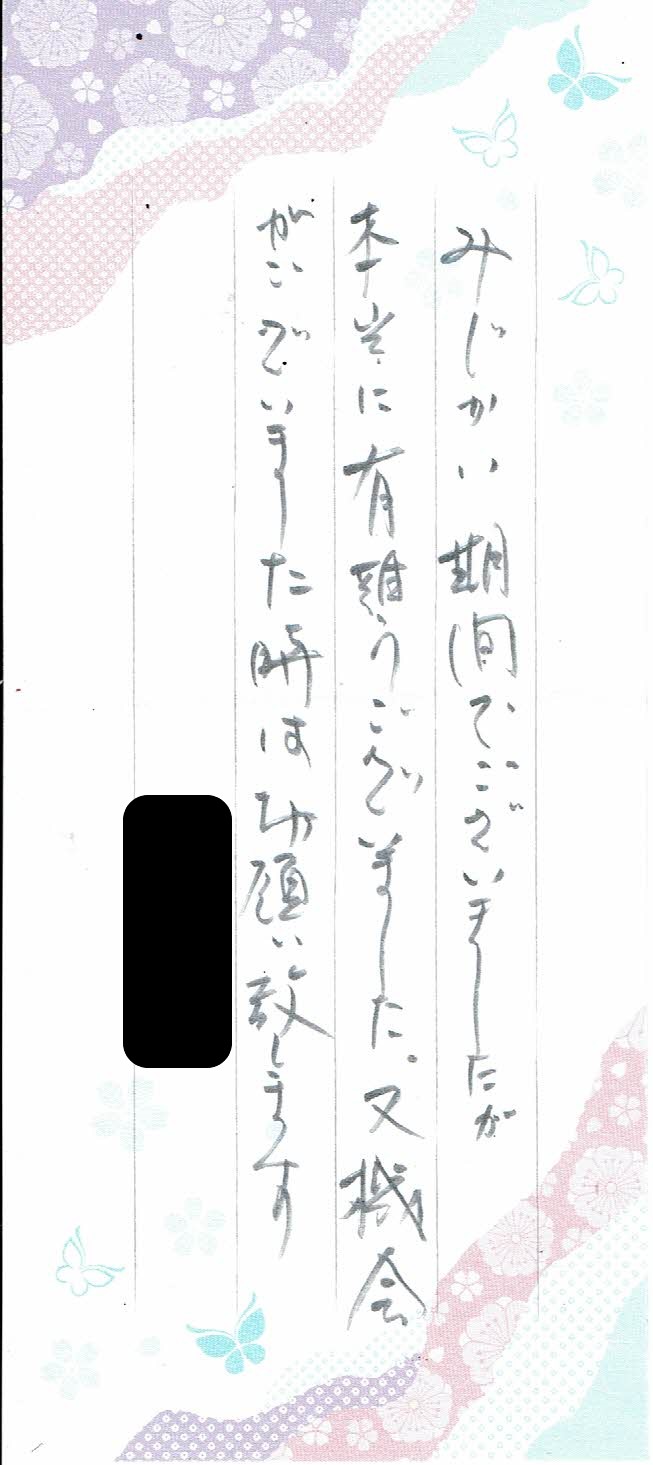 みじかい期間でございましたが
本当に有難うございました。又機会
がございました時はお願い致します